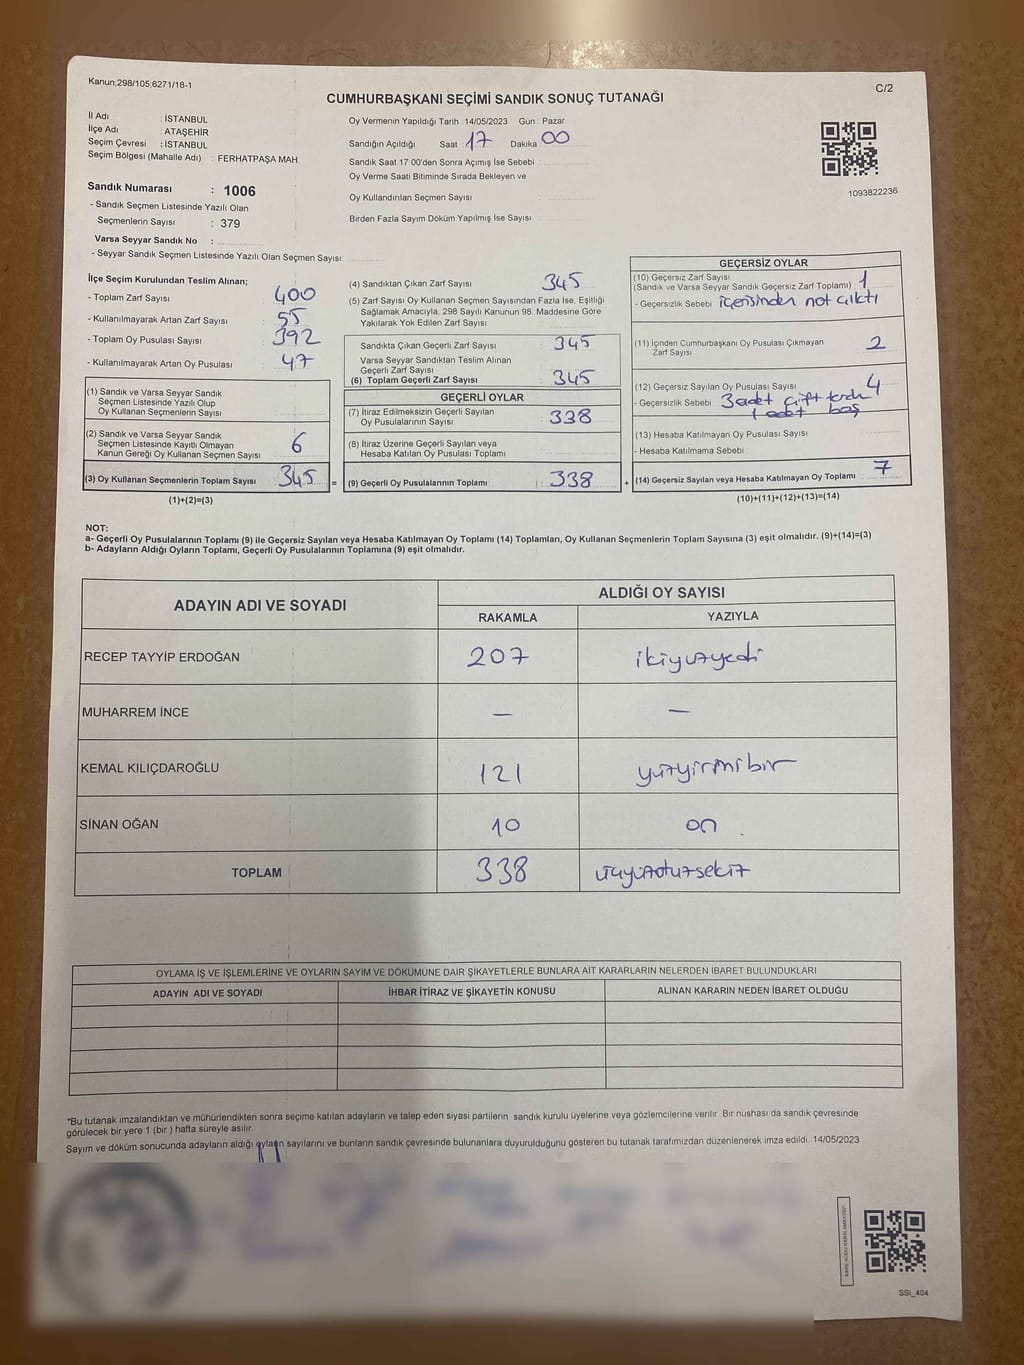 Kanun;298/105,6271/18-1
C/2
CUMHURBAŞKANI SEÇİMİ SANDIK SONUÇ TUTANAĞI
İl Adı : İSTANBUL
İlçe Adı : ATAŞEHİR
Seçim Çevresi : İSTANBUL
Seçim Bölgesi (Mahalle Adı) : FERHATPAŞA MAH.
Sandık Numarası : 1006
- Sandık Seçmen Listesinde Yazılı Olan
Seçmenlerin Sayısı : 379
Varsa Seyyar Sandık No :
- Seyyar Sandık Seçmen Listesinde Yazılı Olan Seçmen Sayısı:
Oy Vermenin Yapıldığı Tarih :14/05/2023 Gün : Pazar
Sandığın Açıldığı Saat : 17 Dakika : 00
Sandık Saat 17 00'den Sonra Açımış İse Sebebi :
Oy Verme Saati Bitiminde Sırada Bekleyen ve
Oy Kullandırılan Seçmen Sayısı :
Birden Fazla Sayım Döküm Yapılmış İse Sayısı :
1093822236
İlçe Seçim Kurulundan Teslim Alınan;
- Toplam Zarf Sayısı : 400
- Kullanılmayarak Artan Zarf Sayısı : 55
- Toplam Oy Pusulası Sayısı : 392
- Kullanılmayarak Artan Oy Pusulası : 47
(1) Sandık ve Varsa Seyyar Sandık
Seçmen Listesinde Yazılı Olup
Oy Kullanan Seçmenlerin Sayısı :
(2) Sandık ve Varsa Seyyar Sandık
Seçmen Listesinde Kayıtlı Olmayan
Kanun Gereği Oy Kullanan Seçmen Sayısı : 6
(3) Oy Kullanan Seçmenlerin Toplam Sayısı : 345 =
(1)+(2)=(3)
(4) Sandıktan Çıkan Zarf Sayısı : 345
(5) Zarf Sayısı Oy Kullanan Seçmen Sayısından Fazla İse, Eşitliği
Sağlamak Amacıyla, 298 Sayılı Kanunun 98. Maddesine Göre
Yakılarak Yok Edilen Zarf Sayısı :
Sandıkta Çıkan Geçerli Zarf Sayısı : 345
Varsa Seyyar Sandıktan Teslim Alınan
Geçerli Zarf Sayısı :
(6) Toplam Geçerli Zarf Sayısı : 345
GEÇERLİ OYLAR
(7) İtiraz Edilmeksizin Geçerli Sayılan
Oy Pusulasının Sayısı : 338
(8) İtiraz Üzerine Geçerli Sayılan veya
Hesaba Katılan Oy Pusulası Toplamı :
(9) Geçerli Oy Pusulalarının Toplamı : 338 +
GEÇERSİZ OYLAR
(10) Geçersiz Zarf Sayısı
(Sandık ve Varsa Seyyar Sandık Geçersiz Zarf Toplamı) : 1
- Geçersizlik Sebebi : içerisinden not çıktı
(11) İçinden Cumhurbaşkanı Oy Pusulası Çıkmayan
Zarf Sayısı : 2
(12) Geçersiz Sayılan Oy Pusulası Sayısı : 4
- Geçersizlik Sebebi : 3 adet çift
1 adet boş
(13) Hesaba Katılmayan Oy Pusulası Sayısı :
- Hesaba Katılmama Sebebi :
(14) Geçersiz Sayılan veya Hesaba Katılmayan Oy Toplamı : 7
(10)+(11)+(12)+(13)=(14)
NOT:
a- Geçerli Oy Pusulalarının Toplamı (9) ile Geçersiz Sayılan veya Hesaba Katılmayan Oy Toplamı (14) Toplamları, Oy Kullanan Seçmenlerin Toplam Sayısına (3) eşit olmalıdır. (9)+(14)=(3)
b- Adayların Aldığı Oyların Toplamı, Geçerli Oy Pusulalarının Toplamına (9) eşit olmalıdır.
ADAYIN ADI VE SOYADI
ALDIĞI OY SAYISI
RAKAMLA YAZIYLA
RECEP TAYYİP ERDOĞAN 207 ikiyüzyedi
MUHARREM İNCE — —
KEMAL KILIÇDAROĞLU 121 yüzyirmibir
SİNAN OĞAN 10 on
TOPLAM 338 üçyüzotuzsekiz
OYLAMA İŞ VE İŞLEMLERİNE VE OYLARIN SAYIM VE DÖKÜMÜNE DAİR ŞİKAYETLERLE BUNLARA AİT KARARLARIN NELERDEN İBARET BULUNDUKLARI
ADAYIN ADI VE SOYADI İHBAR İTİRAZ VE ŞİKAYETİN KONUSU ALINAN KARARIN NEDEN İBARET OLDUĞU
*Bu tutanak imzalandıktan ve mühürlendikten sonra seçime katılan adayların ve talep eden siyasi partilerin sandık kurulu üyelerine veya gözlemcilerine verilir. Bir nüshası da sandık çevresinde
görülecek bir yere 1 (bir ) hafta süreyle asılır.
Sayım ve döküm sonucunda adayların aldığı oyların sayılarını ve bunların sandık çevresinde bulunanlara duyurulduğunu gösteren bu tutanak tarafımızdan düzenlenerek imza edildi. 14/05/2023
SSI_404